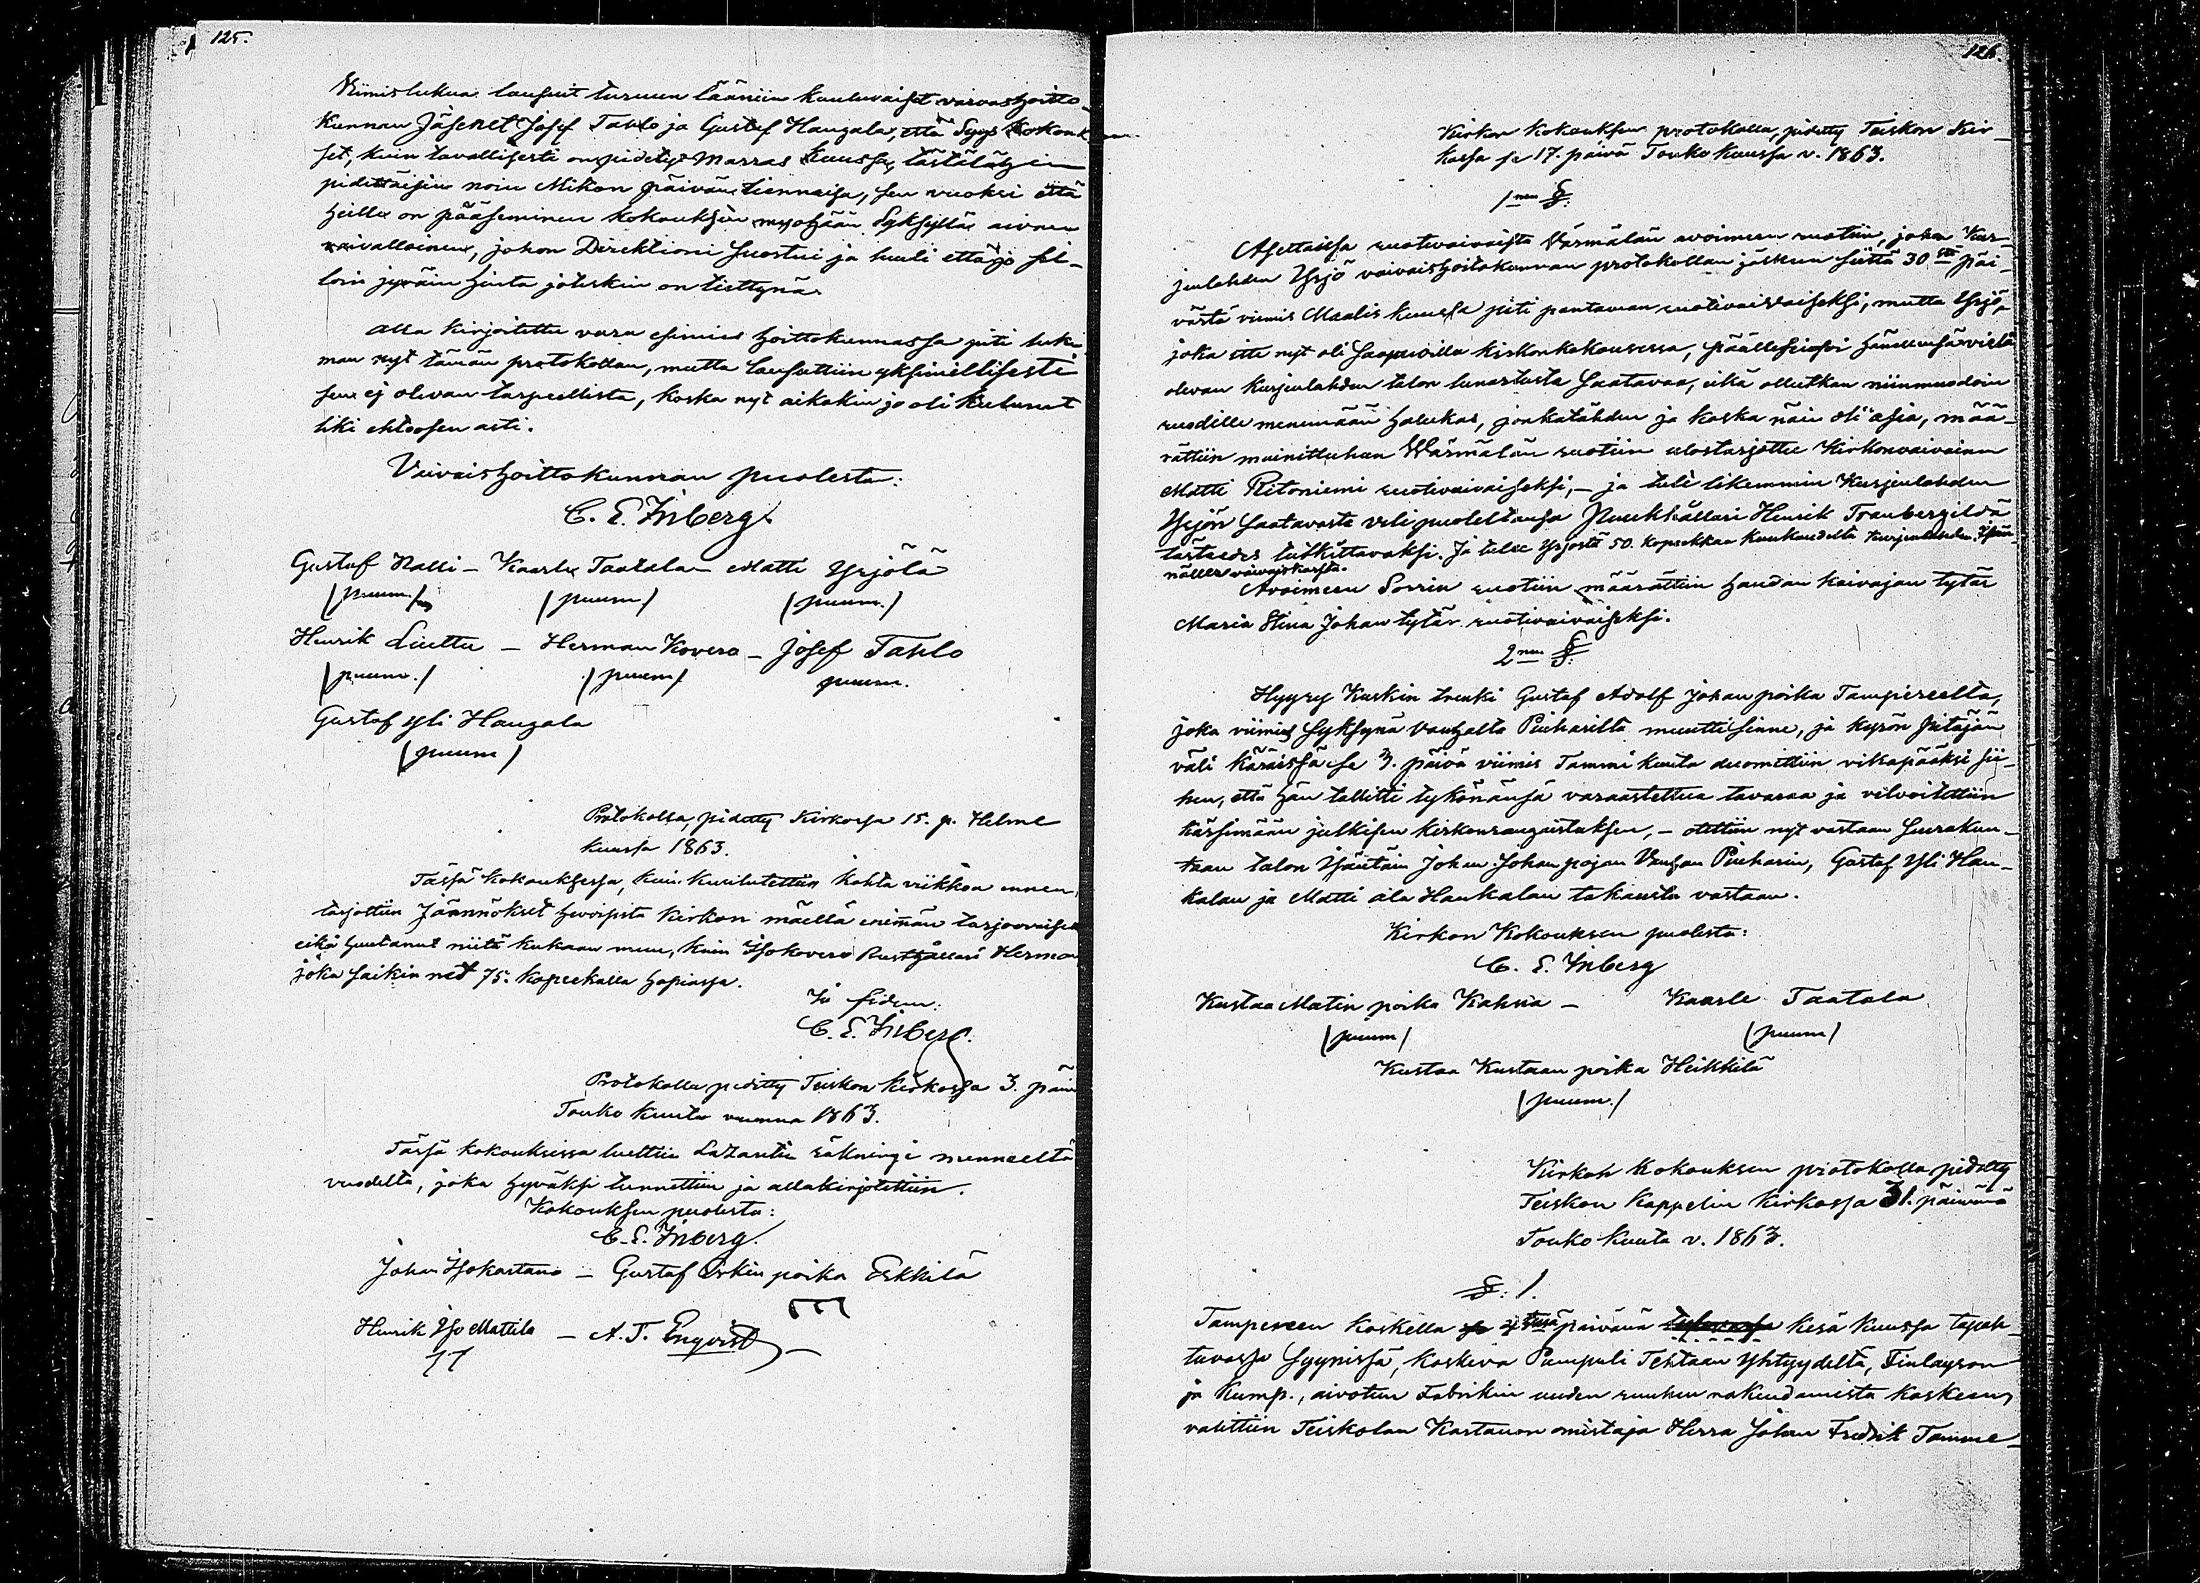 125.
Viimis lukua lausuit turuun lääniin kuuluvaiset vaivashoitto-
kunnan Jäsenet Josef Tahlo ja Gustaf Haugala, että Syys kokouk-
set, kuin tavallisesti on pidetyt Marras kuussa, tästälähin
pidettäisiin noin Mikon päivän tiennoisa, sen vuoksi että
heille on pääseminen kokouksiin myöhään Syksyllä aivan
vaivalloinen, johon Direktioni suostui ja luuli että jo sil-
loin jyväin hinta joteskin on tiettynä.
Alla kirjoitettu vara esimies hoittokunnassa piti luke-
man nyt tämän protokollan, mutta lausuttiin yksimielisesti
sen ej olevan tarpeellista, koska nyt aikakin jo oli kulunut
liki ehtoosen asti.
Vaivaishoittokunnan puolesta:
C. E. Inberg.
Gustaf Nalli – Kaarle Taatala – Matti Yrjölä
(puum.) (puum) (puum.)
Henrik Liuttu – Herman Kovero – Josef Tahlo
(puum.) (puum) puum.
Gustaf yli Haugala
(puum)
Protokolla, pidetty Kirkossa 15. p. Helme
kuussa 1863.
Tässä kokouksessa, kuin kuulutettiin kahta viikkoa ennen,
tarjottiin Jäännökset hevoisista kirkon mäellä enimmän tarjoovaisel
eikä huutanut niitä kukaan muu, kuin Isokovero Rusthållari Herman
joka saikin net 75. kopeekalla hopiassa.
In fidem:
C. E. Inberg.
Protokolla pidetty Teiskon kirkossa 3. päiv
Touko kuuta vuonna 1863.
Tässä kokouksessa luettiin Lazaretin räkningi menneeltä
vuodelta, joka hyväksi tunnettiin ja allakirjotettiin.
Kokouksen puolesta:
C. E. Inberg.
Johan Isokartano – Gustaf Erkin poika Erkkilä
Henrik Iso Mattila – A. T. Enqvist
126.
Kirkon kokouksen protokolla, pidetty Teiskon Kir-
kossa se 17. päivä Touko kuussa v. 1863.
1nen §:
Asettaissa ruotivaivaista Värmälän avoimeen ruotiin, johon Kur-
jenlahden Yrjö vaivaishoitokunnan protokollan jälkeen siittä 30stä päi-
västä viimis Maalis kuussa piti pantaman ruotivaivaiseksi, mutta Yrjö,
joka itte nyt oli saapuvilla kirkonkokouksessa, päällesei hänellensä vielä
olevan Kurjenlahden talon lunastusta saatavaa, eikä ollutkan niinmuodoin
ruodille menemään halukas, jonkatähden ja koska näin oli asia, mää-
rättiin mainittuhun Wärmälän ruotiin ulostarjottu Kirkonvaivainen
Matti Ritoniemi ruotivaivaiseksi, – ja tuli likemmin Kurjenlahden
Yrjön saatavasta velipuoleltansa Ruukhållari Henrik Traubergilda
tästedes tutkittavaksi. Ja tulee Yrjöstä 50. kopeekkaa kuukaudelta Kurjenlahden Isän-
nälle vaivaiskassta.
Avoimeen Sorrin ruotiin määrättiin haudan kaivajan tytär
Maria Stina Johan tytär ruotivaivaiseksi.
2nen §:
Hyyry Kuskin trenki Gustaf Adolf Johan poika Tampereelta,
joka viimis Syksynä Vanhalta Pinharilta muutti sinne, ja kyrön pitäjän
väli käräissä se 3. päivä viimis Tammi kuuta duomittiin vikapääksi sii-
hen, että hän tallitti tykönänsä varastettua tavaraa ja velvoitettiin
kärsimään julkisen kirkonrangaistuksen, – otettiin nyt vastaan seurakun-
taan talon Isäntäin Johan Johan pojan Vanhan Pinharin, Gustaf Yli Hau-
kalan ja Matti ala Haukalan takausta vastaan.
Kirkon Kokouksen puolesta:
C. E. Inberg
Kustaa Matin poika Kahria – Kaarle Taatala
(puum) (puum)
Kustaa Kustaan poika Heikkilä
(puum.)
Kirkon kokouksen protokolla pidetty
Teiskon Kappelin Kirkossa 31. päivänä
Touko kuuta v. 1863.
§: 1.
Tampereen koskella se 4tenä päivänä tulevassa Kesä kuussa tapah-
tuvassa Syynissä, koskeva Pumpuli Tehtaan Yhtyydeltä, Finlayson
ja Kump., aivotun Fabrikin uuden ruuhen rakendamista koskeen,
valittiin Teiskolan Kartanon omistaja Herra Johan Fredrik Tamme-